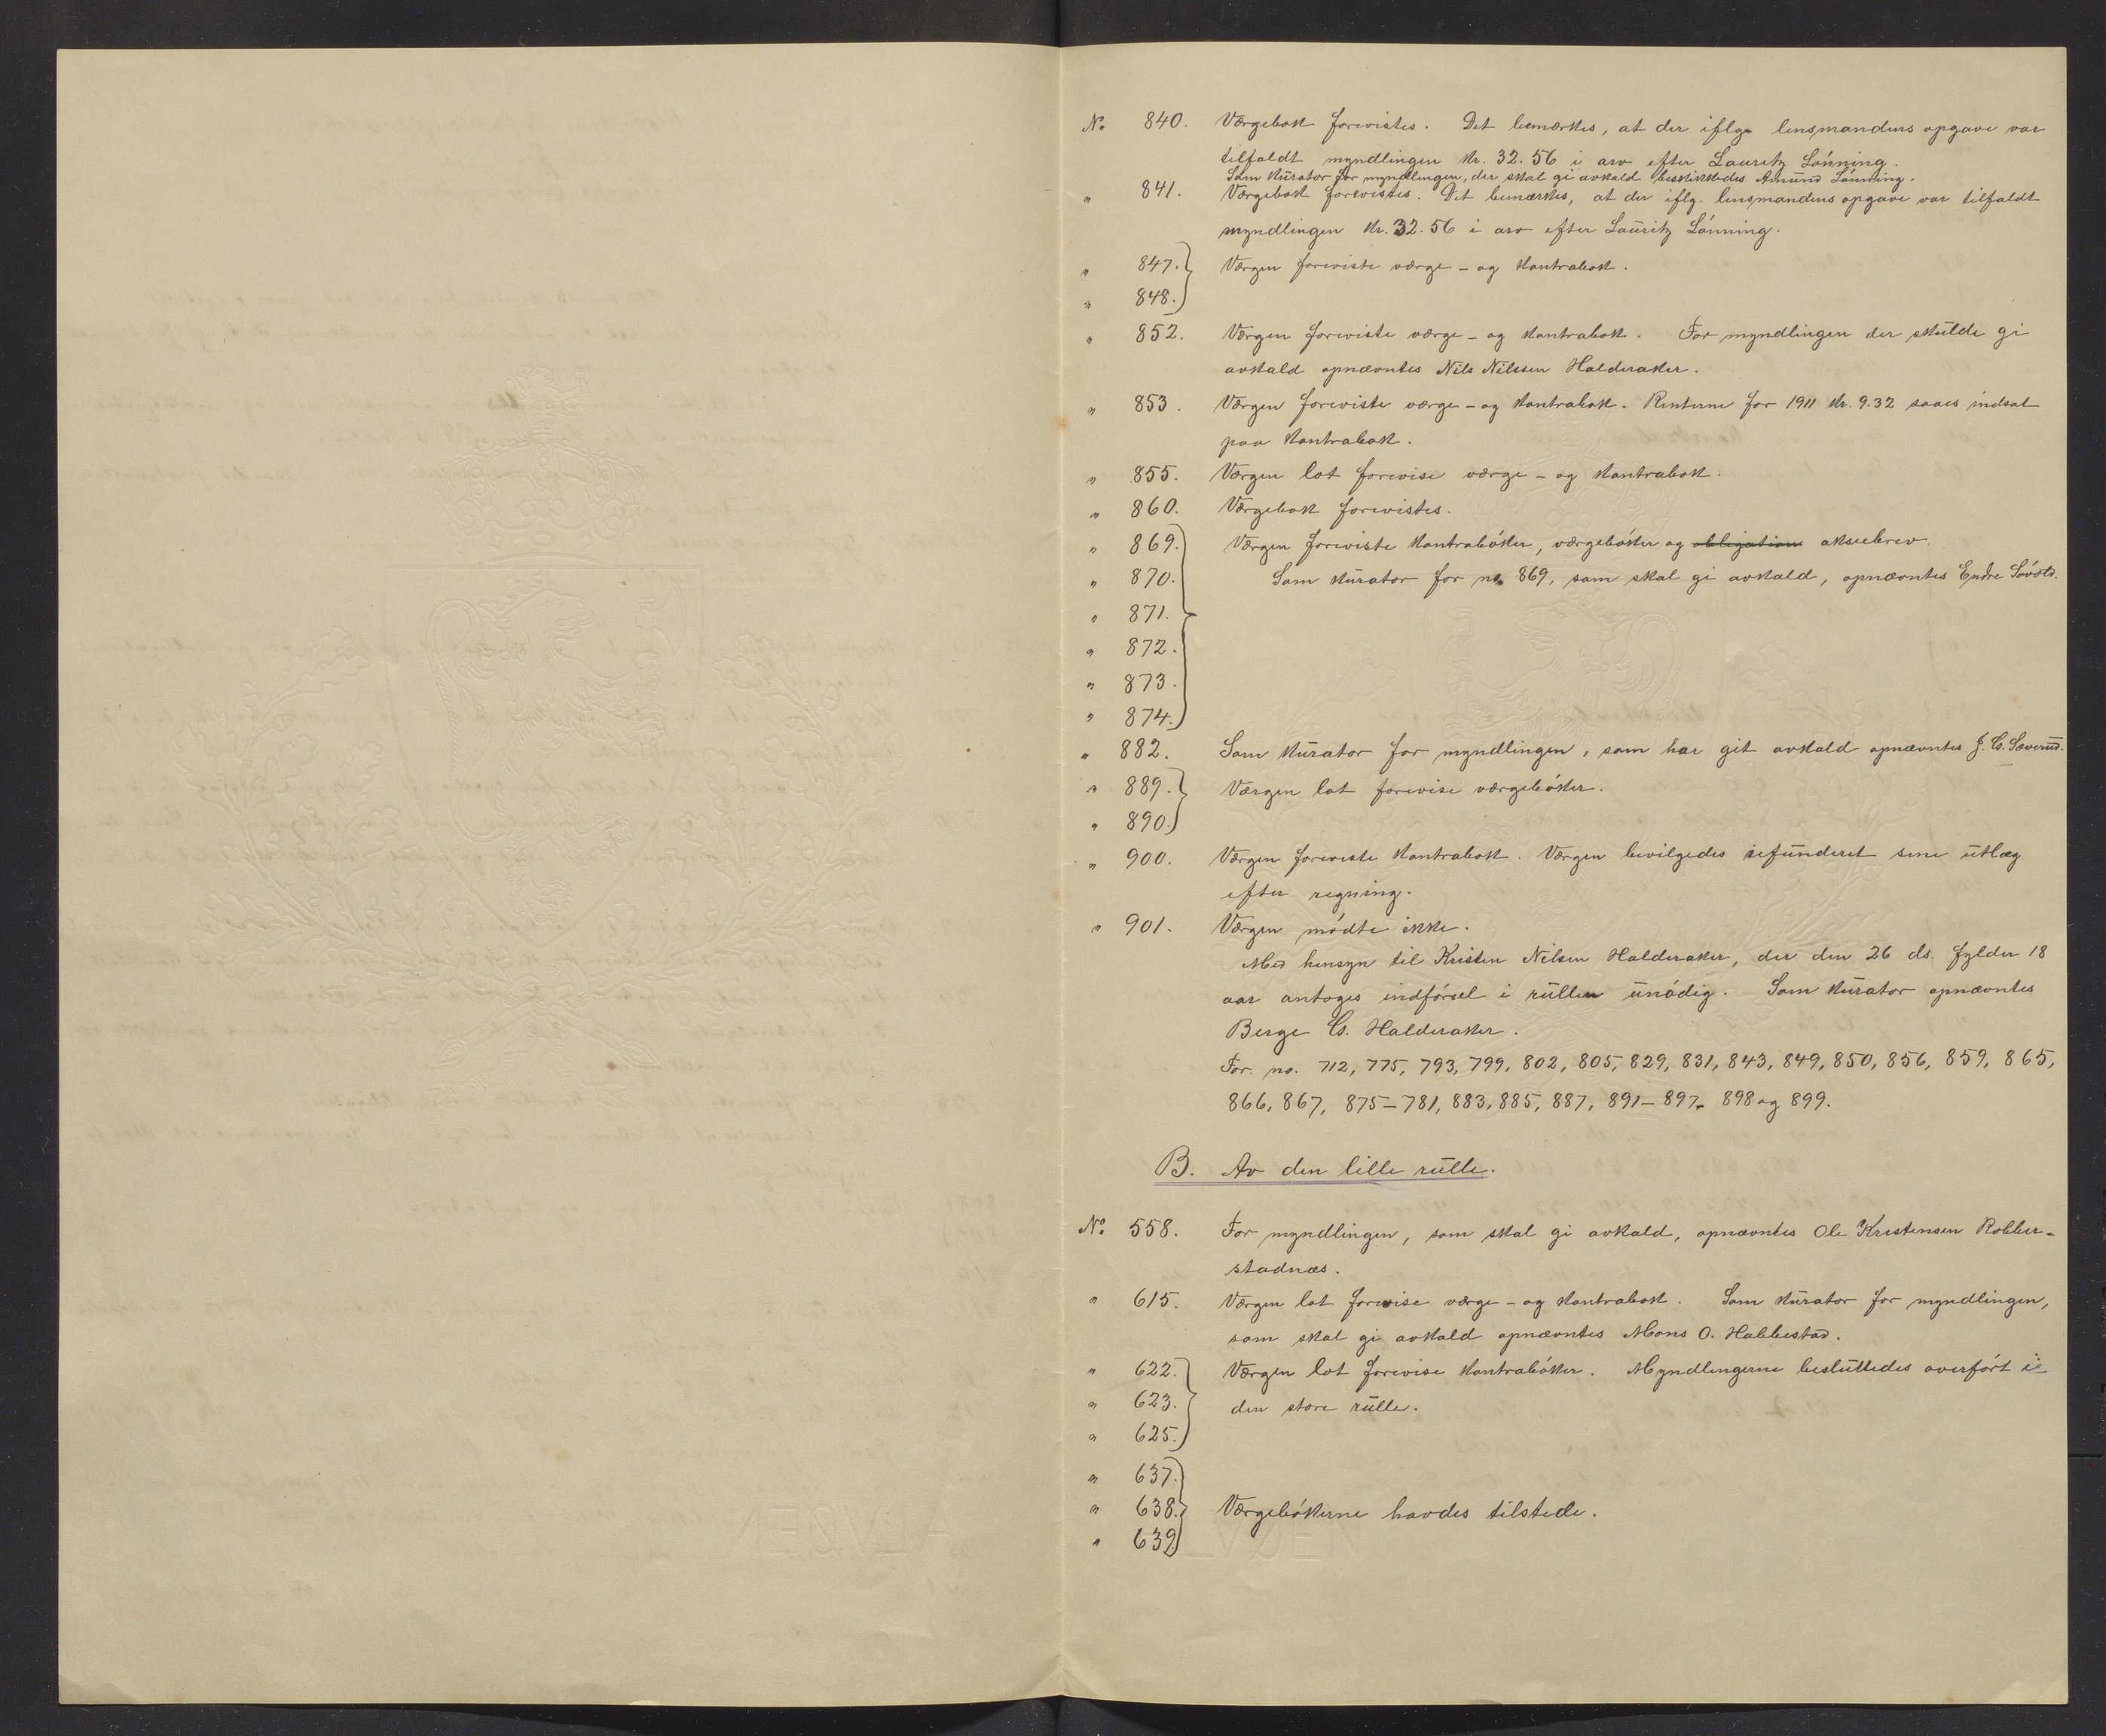 No. 840. Værgebok forevistes. Det bemærkes, at der iflge lensmandens opgave var
tilfaldt myndlingen kr. 32.56 i arv efter Lauritz Lønning.
Som kurator for myndlingen, der skal gi avkald beskikkedes Amund Lønning.
" 841. Værgebok forevistes. Det bemærkes, at der iflg. lensmandens opgave var tilfaldt
myndlingen kr. 32.56 i arv efter Lauritz Lønning.
" 847. Værgen foreviste værge- og kontrabok.
" 848.
" 852. Værgen foreviste værge- og kontrabok. For myndlingen der skulde gi
avkald opnævntes Nils Nilssen Halderaker.
" 853. Værgen foreviste værge- og kontrabok. Renterne for 1911 kr. 9.32 saaes indsat
paa kontrabok.
" 855. Værgen lot forevise værge- og kontrabok.
" 860. Værgebok forevistes.
" 869. Værgen foreviste kontrabøker, værgebøker og obligation aksiebrev.
" 870. Som kurator for no. 869, som skal gi avkald, opnævntes Endre
" 871.
" 872.
" 873.
" 874.
" 882. Som kurator for myndlingen, som har git avkald opnævntes J. C. Sæverud.
" 889. Værgen lot forevise værgebøker.
" 890.
" 900. Værgen foreviste kontrabok. Værgen bevilgedes refunderet sine utlæg
efter regning.
" 901. Værgen mødte ikke.
Med hensyn til Kristen Nilsen Halderaker, der den 26 ds. fylder 18
aar antoges indførsel i rullen unødig. Som kurator opnævntes
Berge Cs. Halderaker.
For. no. 712, 775, 793, 799, 802, 805, 829, 831, 843, 849, 850, 856, 859, 865,
866, 867, 875–781, 883, 885, 887, 891–897. 898 og 899.
B. Av den lille rulle.
No. 558. For myndlingen, som skal gi avkald, opnævntes Ole Kristensen Robber-
stadnæs.
" 615. Værgen lot forevise værge- og kontrabok. Som kurator for myndlingen,
som skal gi avkald opnævntes Mons O. Habbestad.
" 622. Værgen lot forevise kontrabøker. Myndlingerne besluttedes overført i
" 623. den store rulle.
" 625.
" 637.
" 638. Værgebøkerne havdes tilstede.
" 639.